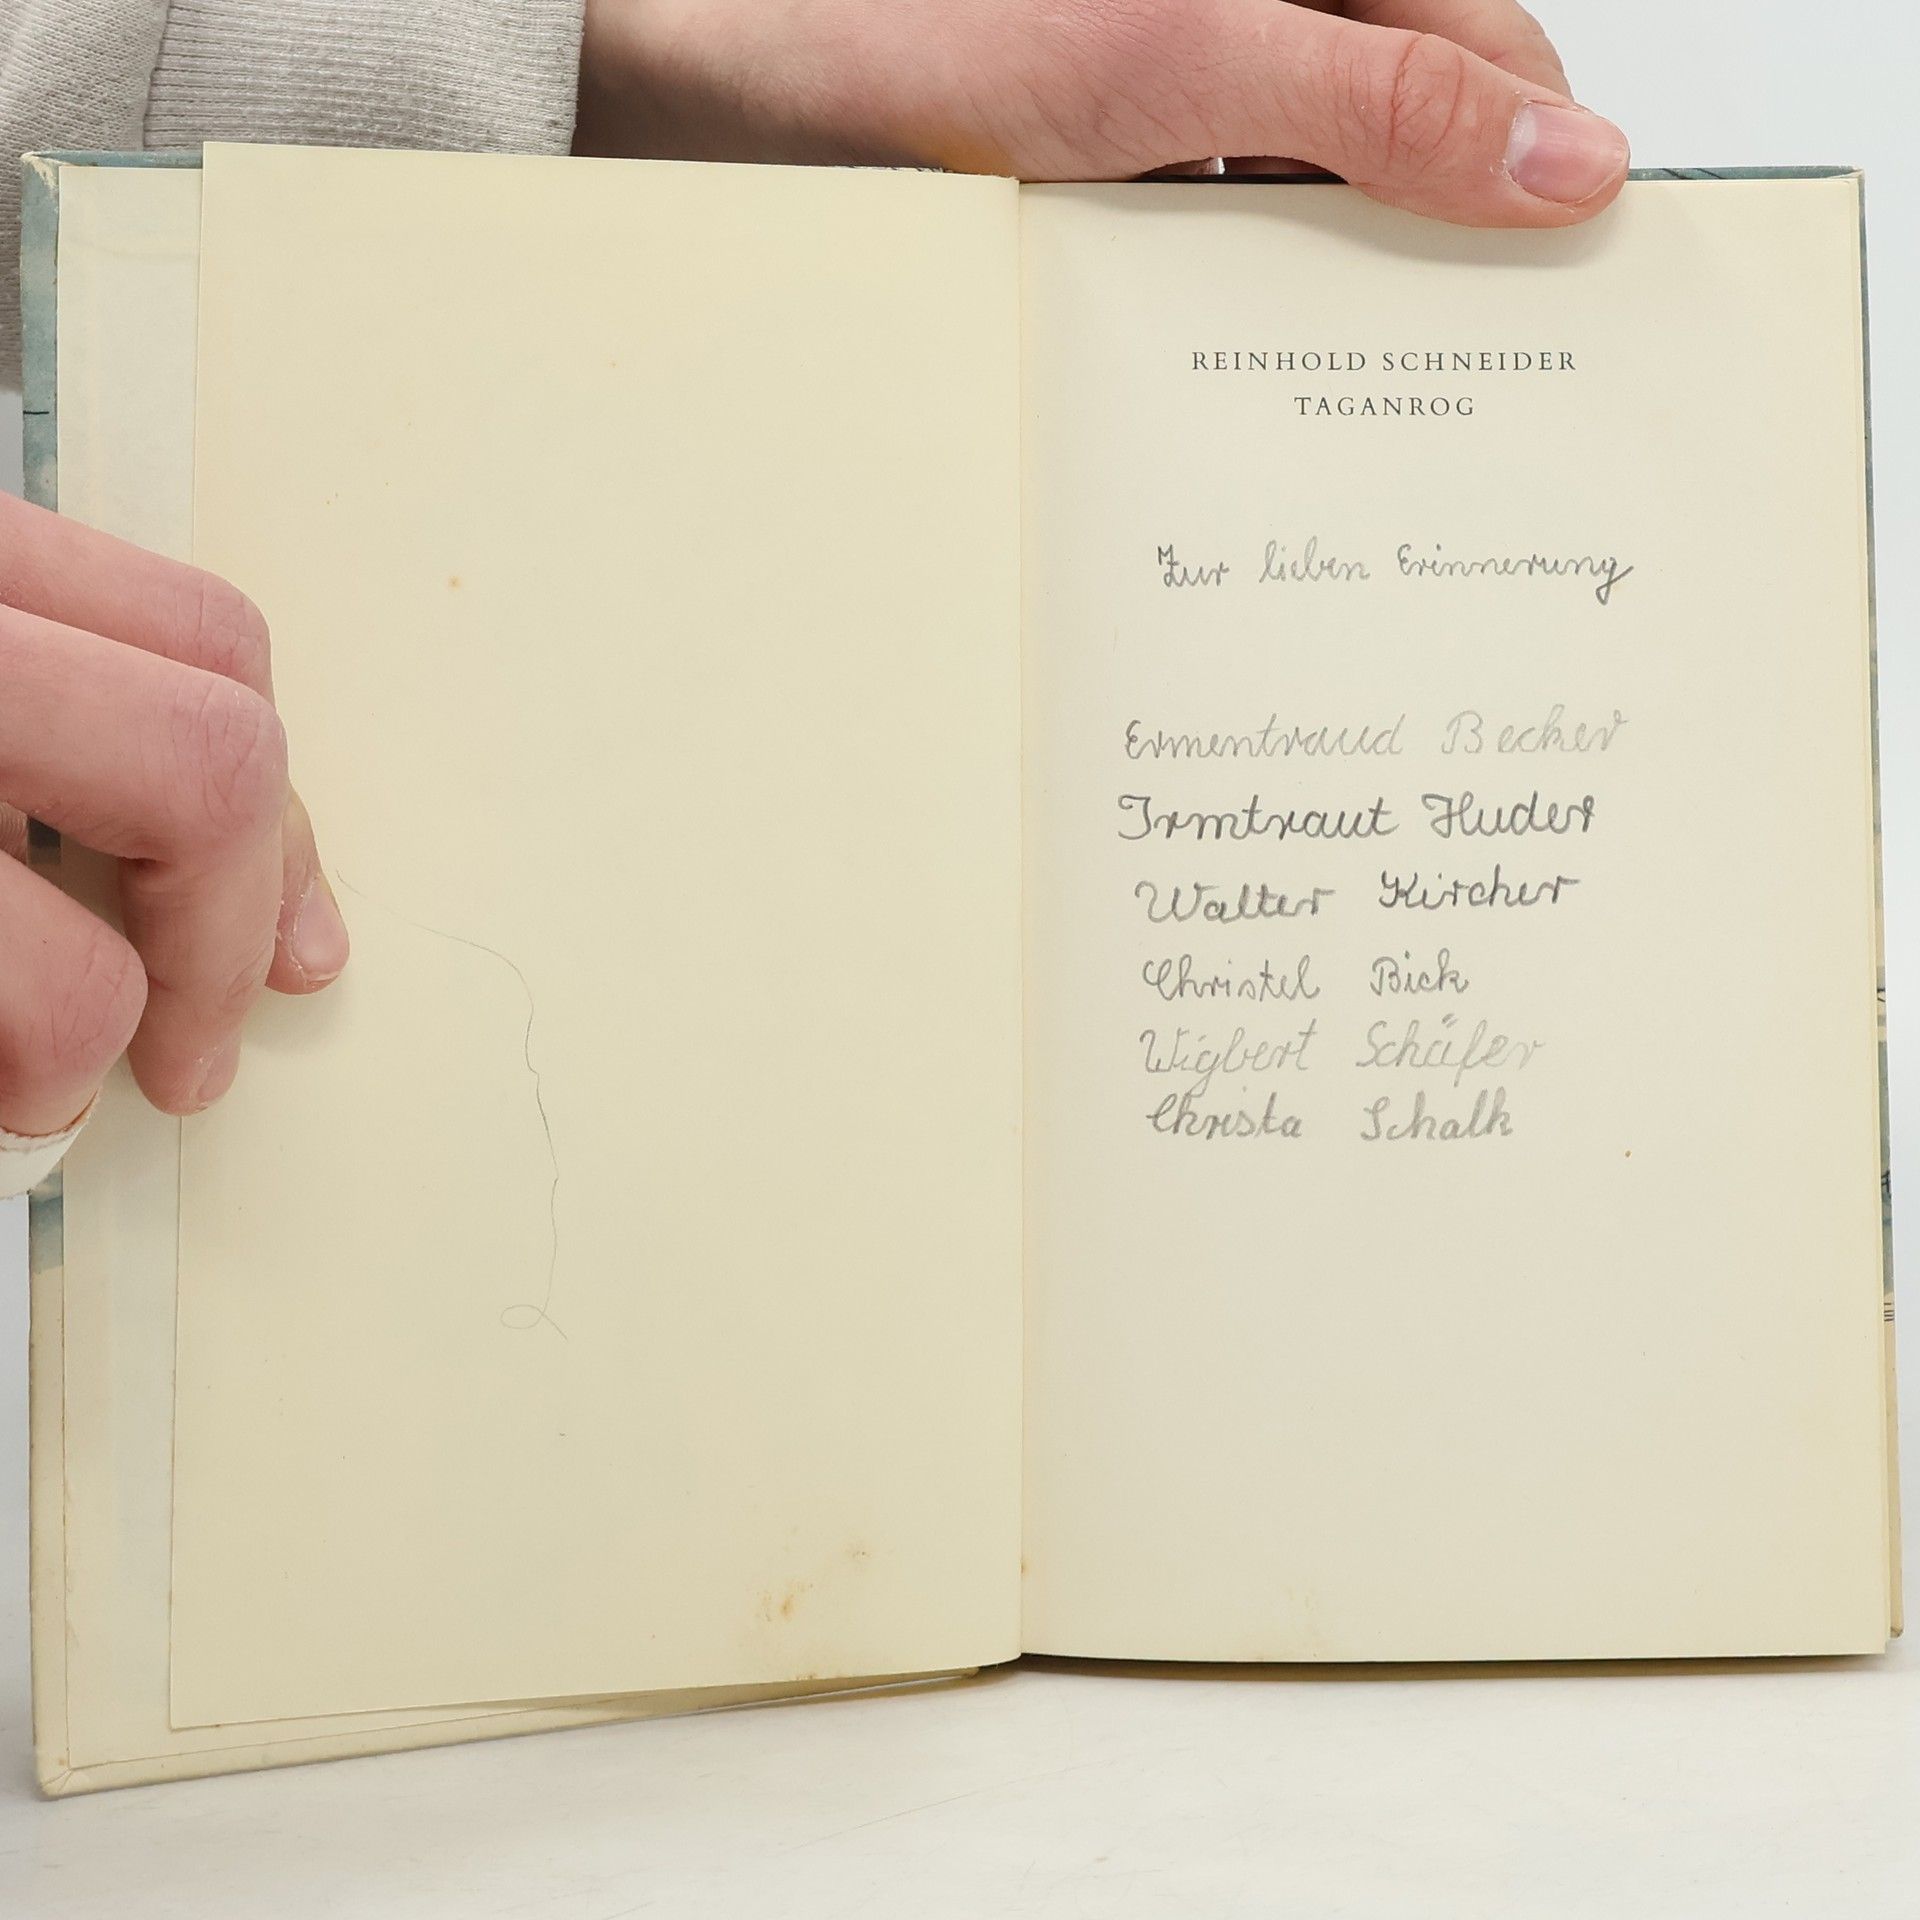 REINHOLD SCHNEIDER
TAGANROG
Zur lieben Erinnerung
Ermentraud Becker
Irmtraut Huder
Walter Kircher
Christel Bick
Wigbert Schäfer
Christa Schalk